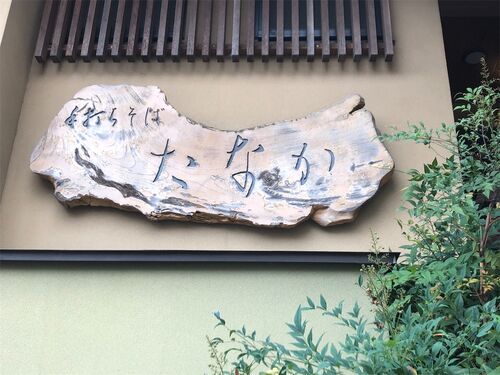 手打ちそば
たなか